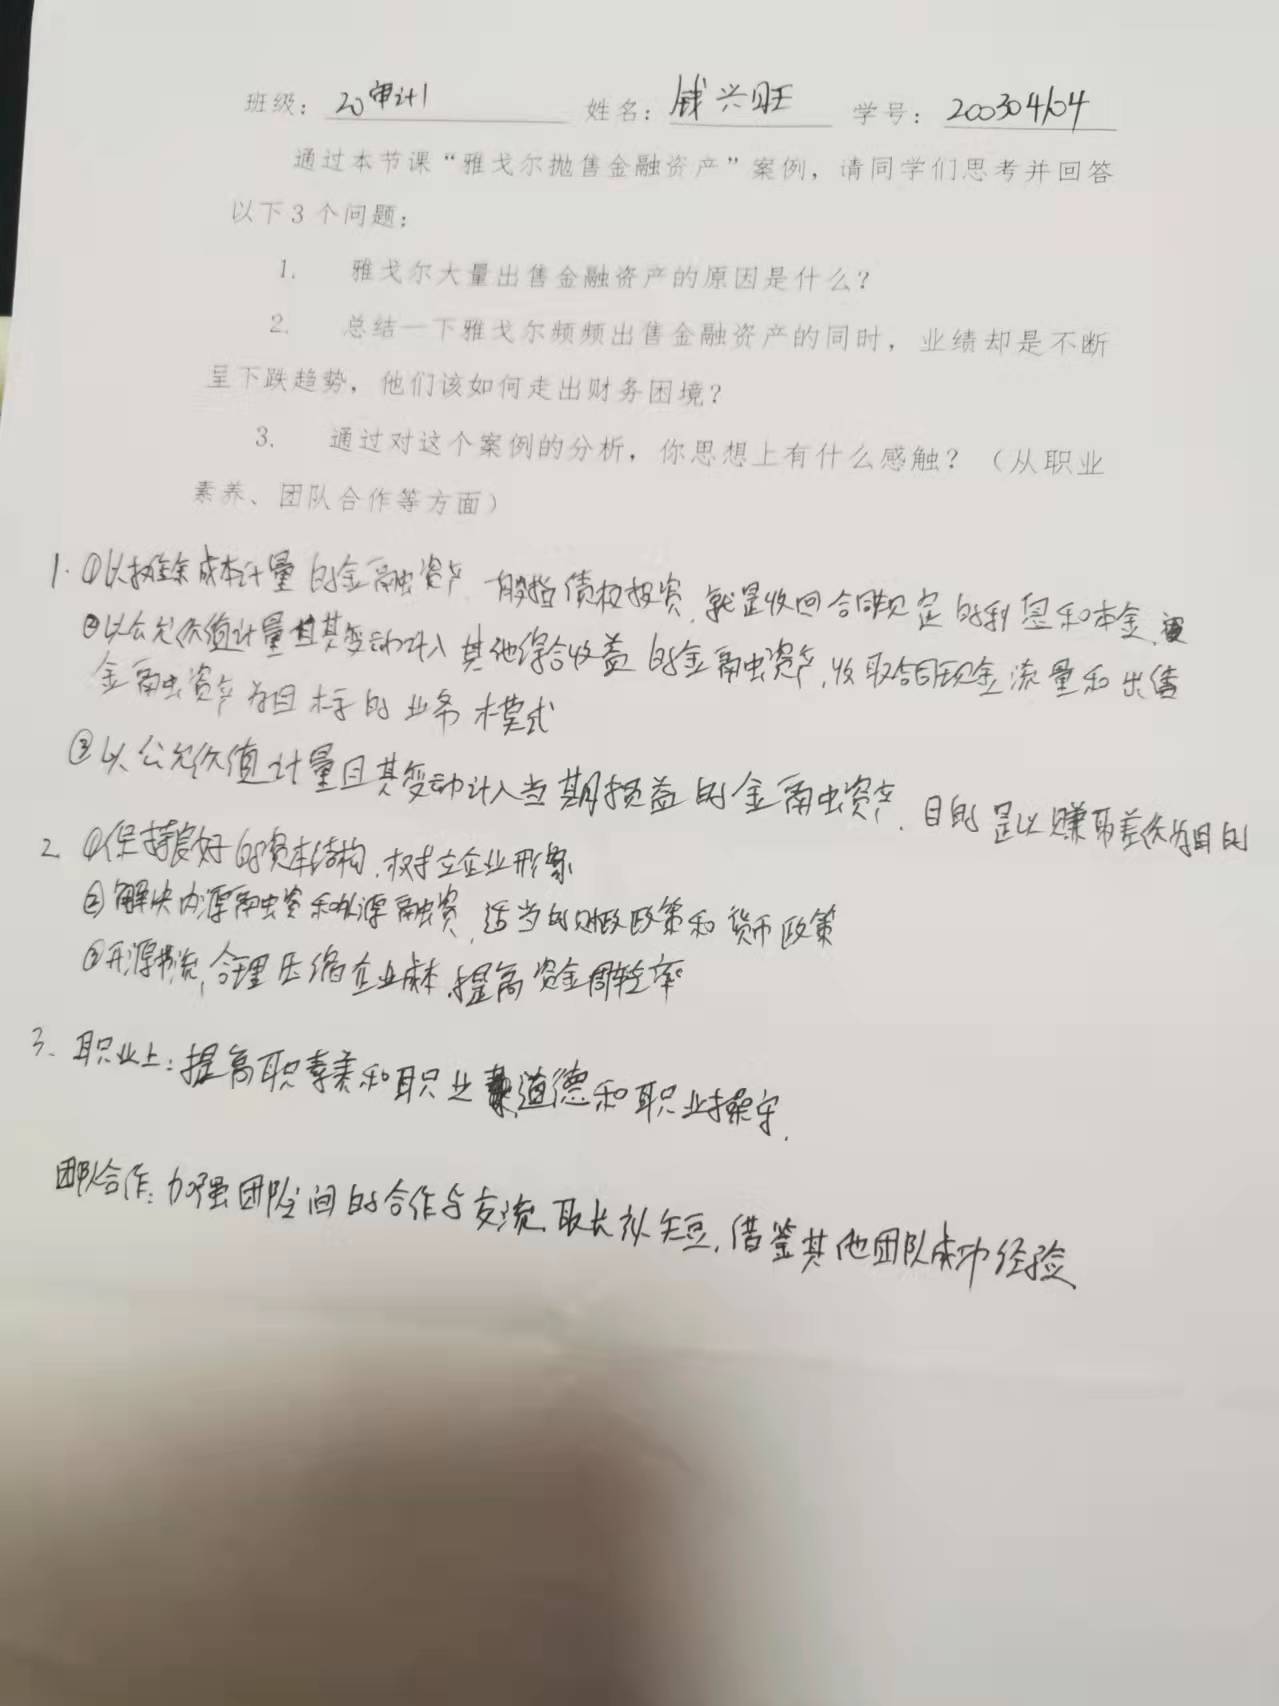 班级：20审计1 姓名：钱兴旺 学号：200304104
通过本节课“雅戈尔抛售金融资产”案例，请同学们思考并回答
以下3个问题：
1. 雅戈尔大量出售金融资产的原因是什么？
2. 总结一下雅戈尔频频出售金融资产的同时，业绩却是不断
呈下跌趋势，他们该如何走出财务困境？
3. 通过对这个案例的分析，你思想上有什么感触？（从职业
素养、团队合作等方面）
1.①以摊余成本计量的金融资产 一般指债权投资、就是收回合同规定的利息和本金、
②以公允价值计量且其变动计入其他综合收益的金融资产，收取合同现金流量和出售
金融资产为目标的业务模式
③以公允价值计量且其变动计入当期损益的金融资产、目的是以赚取差价为目的
2.①保持良好的资本结构，树立企业形象
②解决内源融资和外源融资，适当的财政政策和货币政策
③开源节流，合理压缩企业成本，提高资金周转率
3、职业上：提高职素养和职业道德和职业操守、
团队合作：加强团队之间的合作与交流、取长补短，借鉴其他团队成功经验